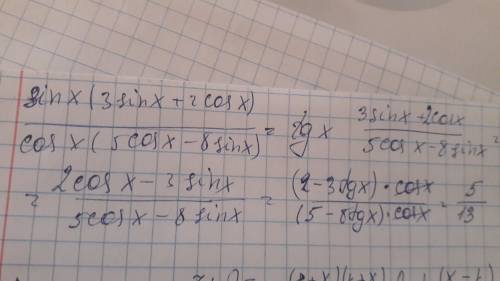 sinx(3sinx+2cosx) / cosx(5cosx-8sinx) = tgx 3sinx-2cosx / 5cosx-8sinx =
= 2cosx-3sinx / 5cosx-8sinx = (2-3tgx)·cosx / (5-8tgx)·cosx = 5 / 13